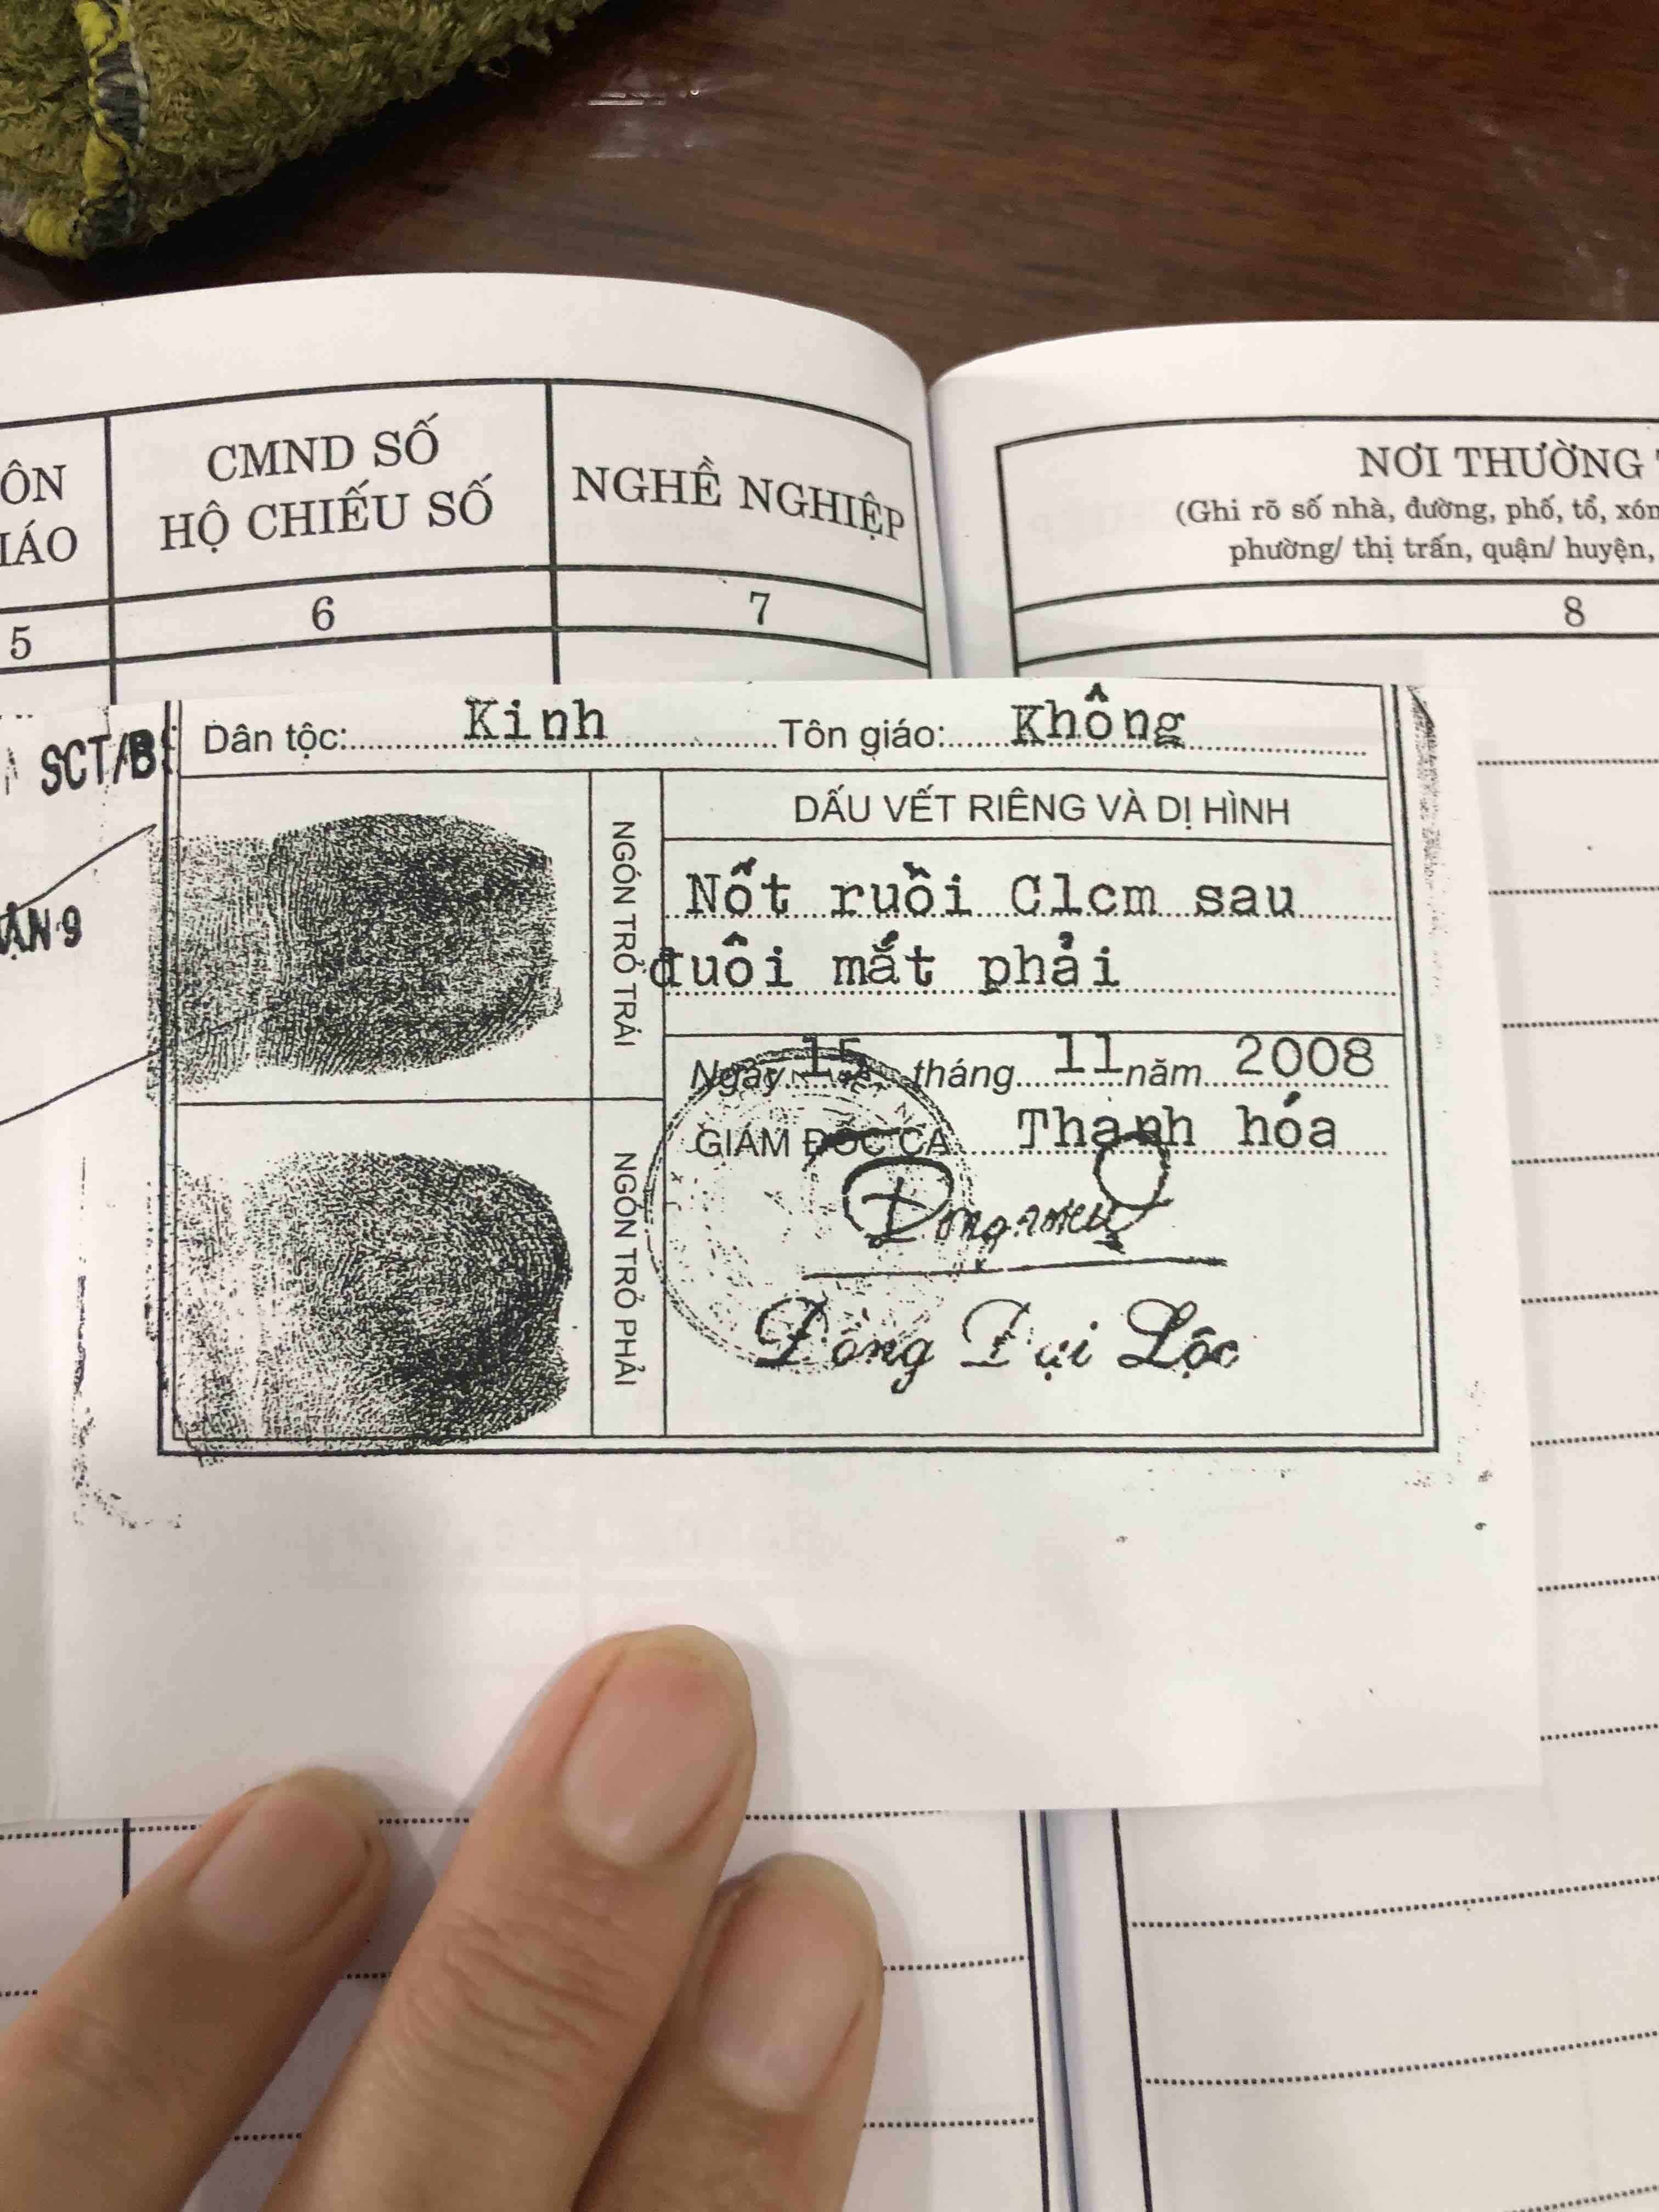 ÔN
IÁO
CMND SỐ
HỘ CHIẾU SỐ
NGHỀ NGHIỆP
NƠI THƯỜNG
(Ghi rõ số nhà, đường, phố, tổ, xóm
phường/ thị trấn, quận/ huyện,
5
6
7
8
SCT/B
ẬN 9
Dân tộc: Kinh Tôn giáo: Không
NGÓN TRỎ TRÁI
NGÓN TRỎ PHẢI
DẤU VẾT RIÊNG VÀ DỊ HÌNH
Nốt ruồi C1cm sau
đuôi mắt phải
Ngày 15 tháng 11 năm 2008
GIÁM ĐỐC CA Thanh hóa
Đồng Đại Lộc